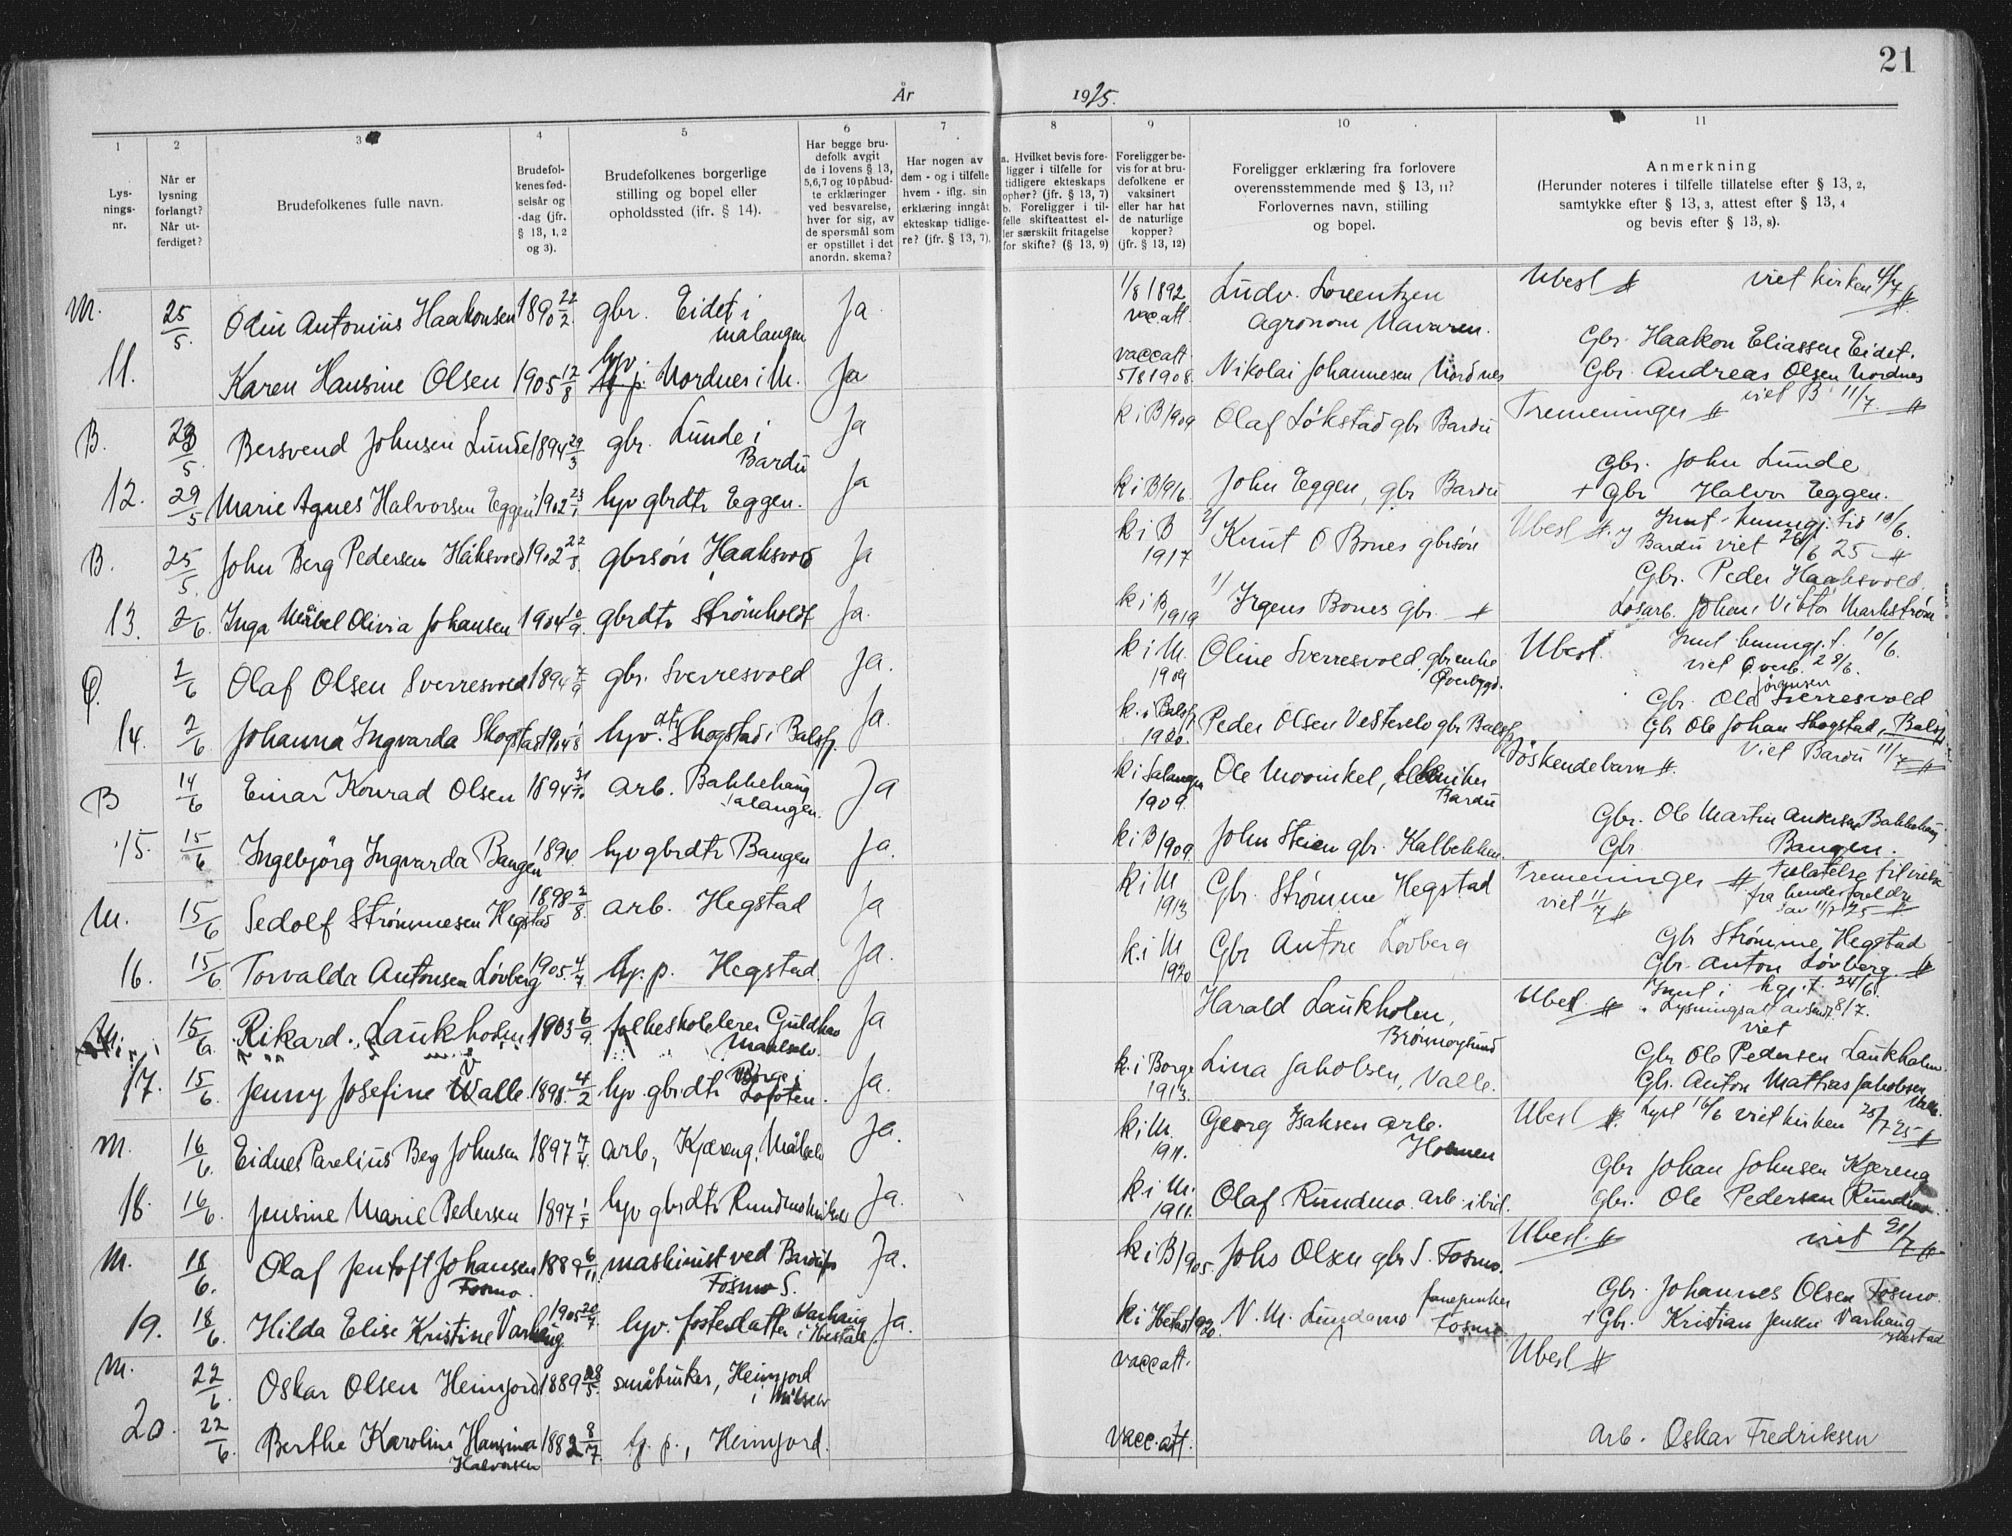 21
År 1925.
1 2 3 4 5 6 7 8 9 10 11
Lys-
nings-
nr.
Når er
lysning
forlangt?
Når ut-
ferdiget?
Brudefolkenes fulle navn.
Brudefol-
kenes fød-
selsår og
-dag (jfr.
§ 13, 1, 2
og 3).
Brudefolkenes borgerlige
stilling og bopel eller
opholdssted (ifr. § 14).
Har begge bru-
defolk avgit
de i lovens § 13,
5,6,7 og 10 påbud-
te erklæringer
ved besvarelse,
hver for sig, av
de spørsmål som
er opstillet i det
anordn. skema?
Har nogen av
dem - og i tilfelle
hvem - iflg. sin
erklæring inngåt
ekteskap tidlige-
re? (jfr. § 13, 7).
a. Hvilket bevis fore-
ligger i tilfelle for
tidligere ekteskaps
ophør? (jfr. § 13, 7)
b. Foreligger i til-
felle skifteattest el-
ler særskilt fritagelse
for skifte? (§ 13, 9)
Foreligger be-
vis for at bru-
defolkene er
vaksinert
eller har hat
de naturlige
kopper?
(jfr. § 13, 12)
Foreligger erklæring fra forlovere
overensstemmende med § 13, 11?
Forlovernes navn, stilling
og bopel.
Anmerkning
(Herunder noteres i tilfelle tillatelse efter § 13, 2,
samtykke efter § 13, 3, attest efter § 13, 4
og bevis efter § 13, 8).
M. 25/5. Odin Antonius Haakonsen 1890 22/2. gbr. Eidet i Malangen Ja 1/8 1892 vac.att. Ludv. Lorentzen Agronom Navaren. Ubesl viet kirken 4/7
Gbr. Haakon Eliassen Eidet.
11. Karen Hansine Olsen 1905 12/8 hjv. Nordnes i M. Ja vaccatt 5/8 1908. Nikolai Johannesen Nordnes Gbr. Andreas Olsen Nordnes
B. 5. Bersvend Johnsen Lunde 1894 29/3 gbr. Lunde i Bardu Ja k i B 1909 Olaf Løkstad gbr Bardu Tremeninger viet B 11/7.
Gbr. John Lunde
12. 29/5 Marie Agnes Halvorsen Eggen 1902 23/1 hjv gbrdtr Eggen. Ja k i B 1916. John Eggen, gbr Bardu + Gbr Halvor Eggen.
B. 25/5. John Berg Pedersen Håksvold 1902 22/8. gbrsøn Haaksvold Ja k i B 1917 2/ Knut O Bones gbrsøn Ubesl 10/6.
Bardu viet 26/6 25
Gbr. Peder Haaksvold.
13. 2/6. Inga Mabel Olivia Johansen 1904 10/9. gbrdtr Strømholt Ja. k i B 1919 1/ Jrgens Bones gbr. Løsarb. Johan Viktor Markstrøm
Ø. 2/6 Olaf Olsen Sverresvold 1894 7/9 gbr. Sverresvold Ja. k i M. 1909 Oline Sverresvold gbrenke Øverbygd. Ubesl. 10/6.
viet Øverb. 28/6.
Gbr. Ola Jørgensen Sverresvold
14. 2/6 Johanna Ingvarda Skogstad 1904 1/8 hjv. dtr Skogstad i Balsfj. Ja. k. i Balsfj. 1920. Peder Olsen Vesterelv gbr Balsfj. Gbr Ole Johan Skogstad, Balsfj
B 14/6 Einar Konrad Olsen 1894 arb. Bakkehaug Salangen. Ja k i Salangen 1909. Ole Movinkel, Bardu Søskendebarn. Viet Bardu 11/7
Gbr. Ole Martin Andersen Bakkehaug
15. 15/6 Ingebjörg Ingvarda Bangen 1896 hjv gbrdtr Bangen Ja. k i B 1909. John Steien gbr. Kalbekken. Gbr. Bangen.
M. 15/6 Sedolf Strømmesen Hegstad 1898 2/8 arb. Hegstad Ja k i M 1913 Gbr. Strømme Hegstad Tremeninger Tillatelse til vielse
viet 11/7 fra hendes foreldre
av 11/7 25
Gbr Strømme Hegstad
16. 15/6 Torvalda Antonsen Løvberg 1905. 4/7 hj. p. Hegstad. Ja. k. i M 1920 Gbr Anton Løvberg Gbr. Anton Løvberg
M. 15/6. Rikard Laukholm 1903 6/9 folkeskolelærer Guldhav Maalselv. Ja Harald Laukholm, Brønnøysund Ubesl. 24/6.
Lysningsatt avsendt 8/7.
viet
Gbr Ole Pedersen Laukholm
17. 15/6. Jenny Josefine Walle 1898. 4/2 hjv gbrdtr Borge i Lofoten. Ja. k. i Borge 1913. Lina Jakobsen, Valle. Gbr. Anton Mathias Jakobsen Valle.
M. 16/6. Eidnes Parelius Berg Johnsen 1897 7/4. arb, Kjæreng, Målselv Ja. k i M. 1911. Georg Isaksen arb. Holmen Ubesl Lyst 16/6 viet kirken 25/7 25
Gbr Johan Johnsen Kjereng
18. 16/6. Jensine Marie Pedersen 1897 1/5 hjv gbrdtr Rundmo Målselv Ja. k i M. 1911. Olaf Rundmo arb. ibid. Gbr. Ole Pedersen Rundmo.
M. 18/6. Olaf Jentoft Johansen Fosmo. 1889 6/11. maskinist ved Fosmo S. Ja. k i B 1905. Johs Olsen gbr S. Fosmo. Ubesl. viet 21/7
Gbr. Johannes Olsen Fosmo.
19. 18/6. Hilda Elise Kristine Varhaug. 1905 20/7. hjv. fosterdatter Varhaug i Ibestad. Ja. k i Ibestad 1920. N. M. Lundamo Fosmo. + Gbr. Kristian Jensen Varhaug Ibestad
M. 22/6 Oskar Olsen Heimjord 1889 28/5. småbruker, Heimjord i Målselv vaccatt. Ubesl
20. 22/6. Berthe Karoline Hansina Halvorsen 1882 9/7. tj. p., Heimjord. vacc.att. arb. Oskar Fredriksen